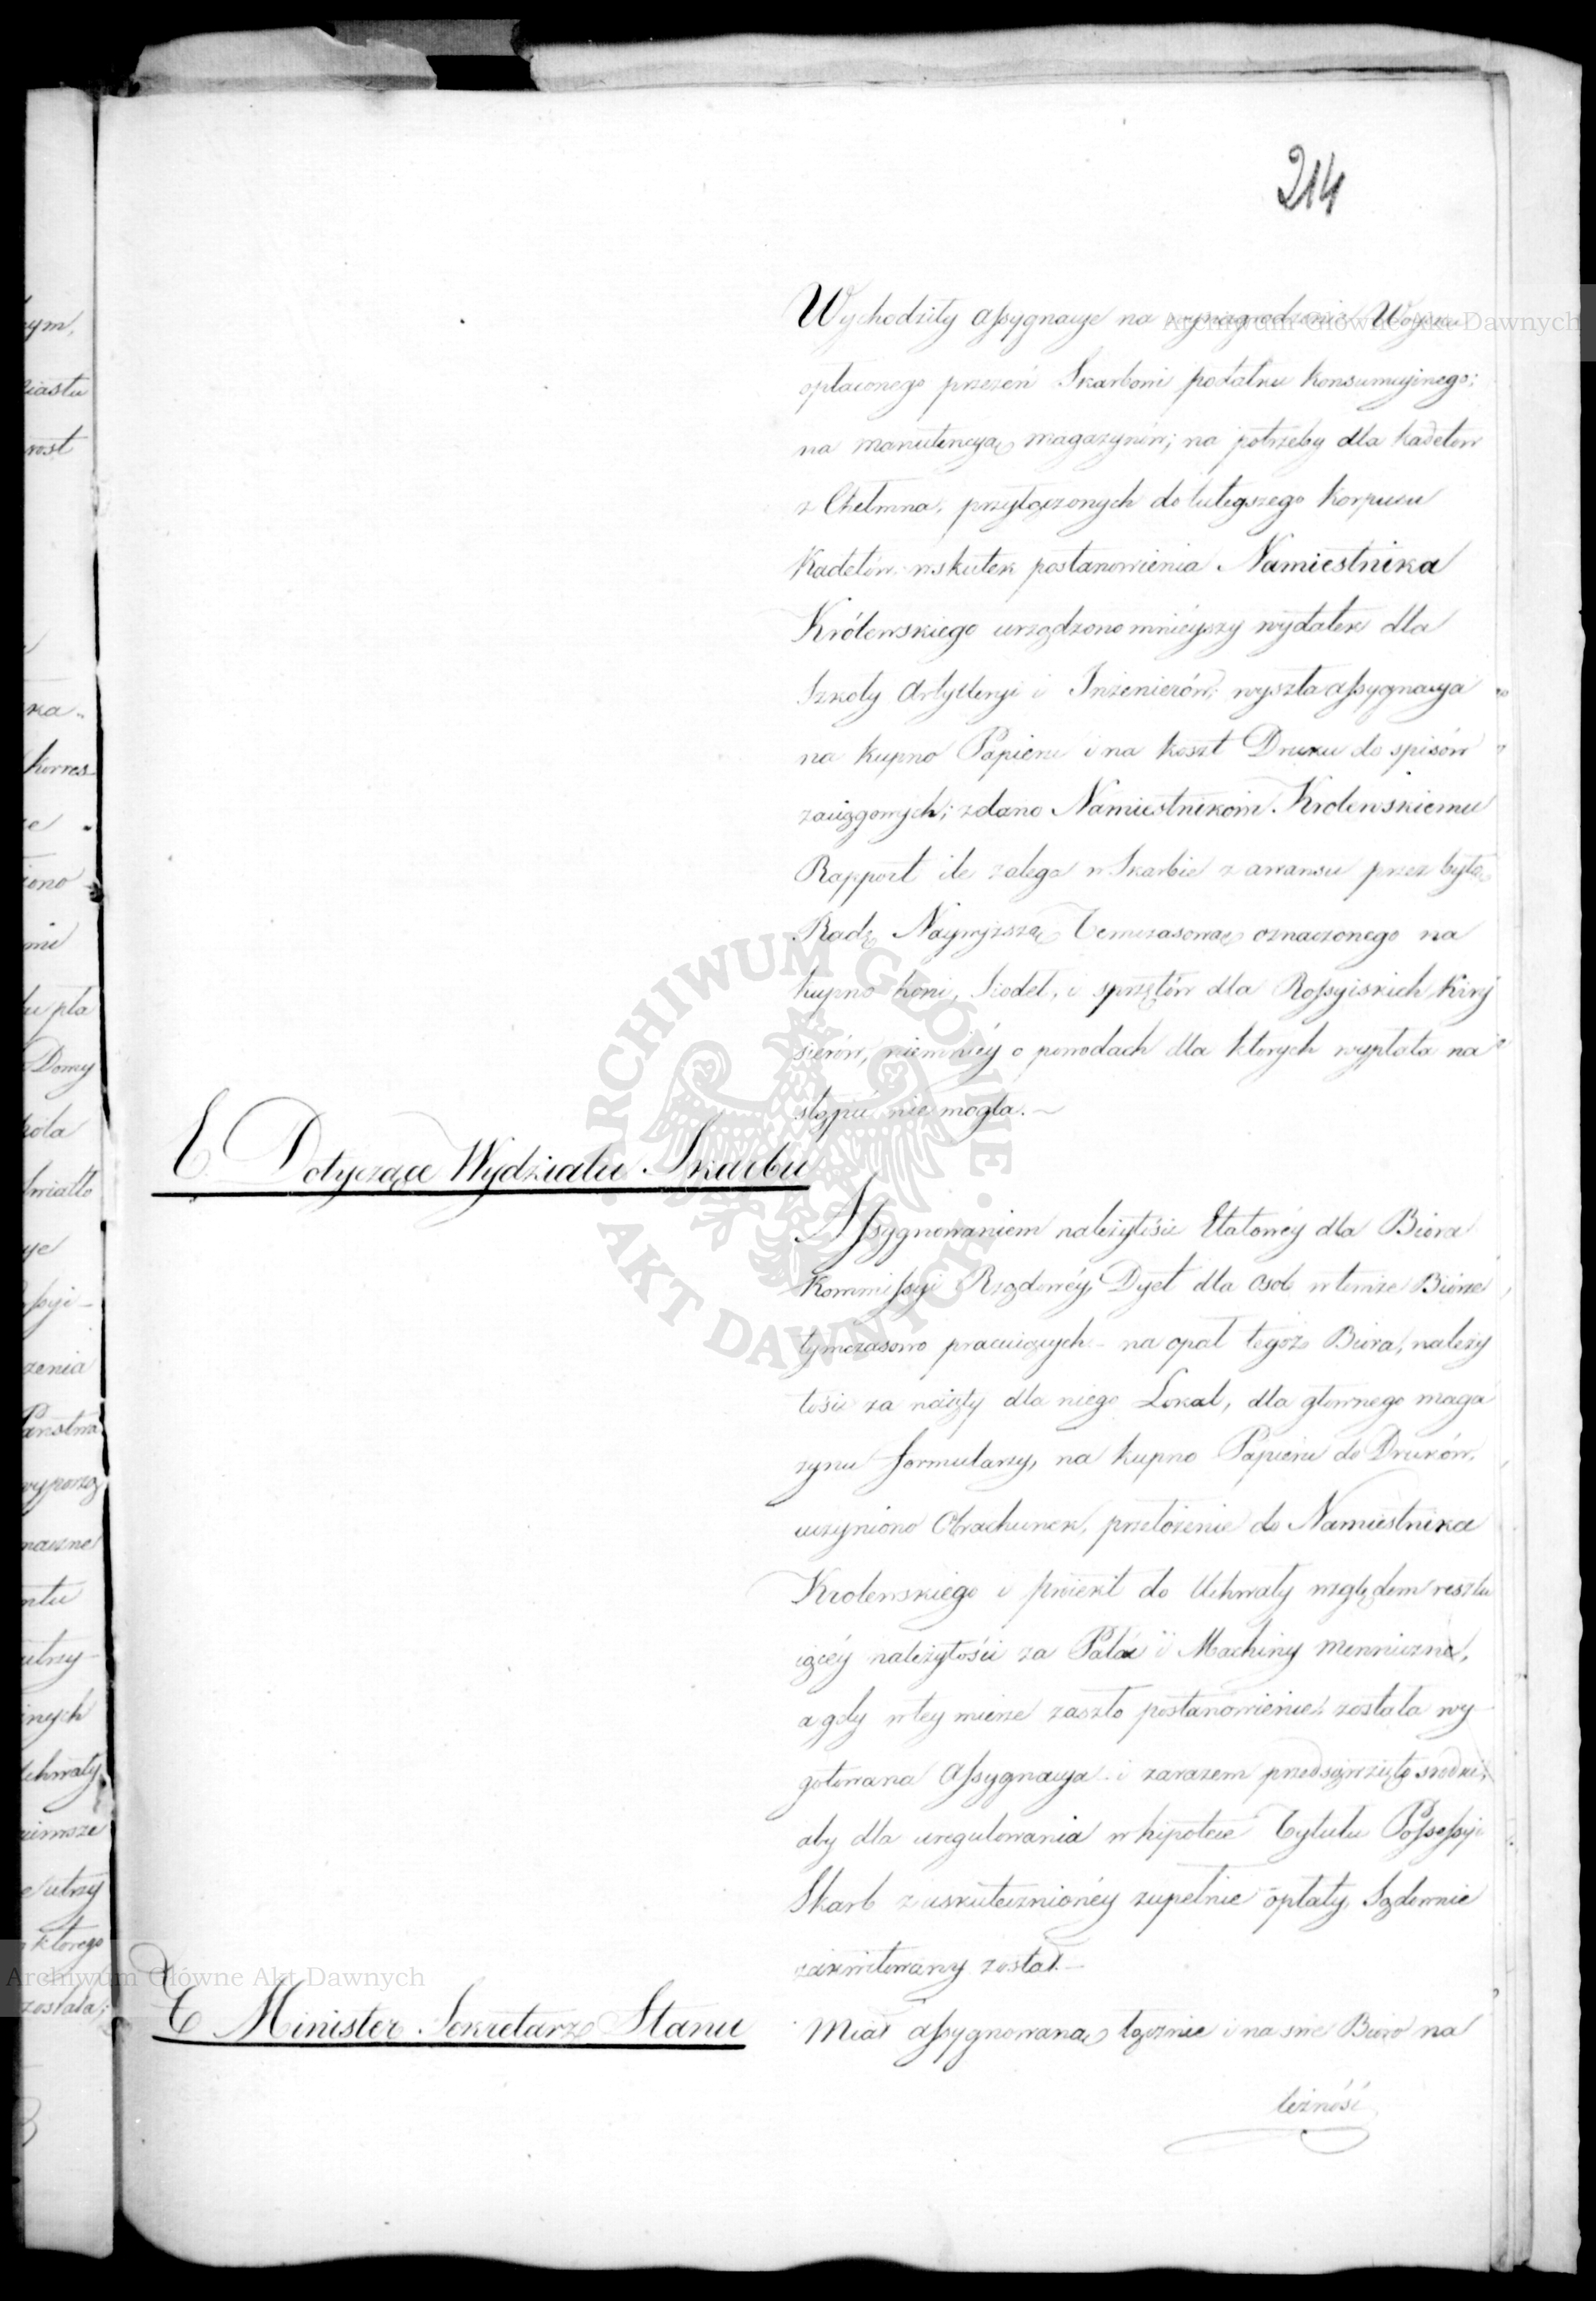 214
Wychodziły assygnacye na wynagrodzenie Woysku
opłaconego przezeń Skarbowi podatku konsumcyjnego;
na manutencyą magazynów; na potrzeby dla kadetow
z Chełmna, przyłączonych do tuteyszego korpusu
Kadetów, wskutek postanowienia Namiestnika
Królewskiego urządzono mnieyszy wydatek dla
Szkoły Artylleryi i Inżenierów; wyszła assygnacya
na kupno Papieru i na koszt Druku do spisów
zaciągowych; zdano Namiestnikowi Krolewskiemu
Rapport ile zalega w Skarbie z awansu przez byłą
Radę Naywyższą Temczasową oznaczonego na
kupno koni, Siodeł, i sprzętów dla Rossyiskich Kiry
sierów, niemniéy o powodach dla ktorych wypłata na
stąpić nie mogła. —
E Dotyczące Wydziału Skarbu
Assygnowaniem należytości Etatowéy dla Biora
Kommissyi Rządowéy, Dyet dla osob w temże Biorze
tymczasowo pracuiących — na opał tegoż Biora, należy
tości za naięty dla niego Lokal, dla głownego maga
zynu formularzy, na kupno Papieru do Druków,
uczyniono Obrachunek, przełożenie do Namiestnika
Krolewskiego i proiekt do Uchwały względem resztu
iącéy należytości za Pałac i Machiny menniczne,
a gdy w tey mierze zaszło postanowienie, została wy
gotowana assygnacya i zarazem przedsięwzięto srodki,
aby dla uregulowania w hipotece Tytułu Possessyi
Skarb z uskutecznionéy zupełnie opłaty, Sądownie
zakwitowany został. —
Minister Sekretarz Stanu
Miał assygnowaną łącznie i na swe Biuro na
leżność
Archiwum Główne Akt Dawnych
Archiwum Główne Akt Dawnych
ARCHIWUM GŁÓWNE
AKT DAWNYCH
ym,
iastu
rost
ka.
korres
ono
u pła
Domy
oła
światło
ye
ssyi
zenia
Państwa
wyporzą
naczne
ntu
utrzy
nych
chwały
ierwsze
utrzy
ktorego
została;